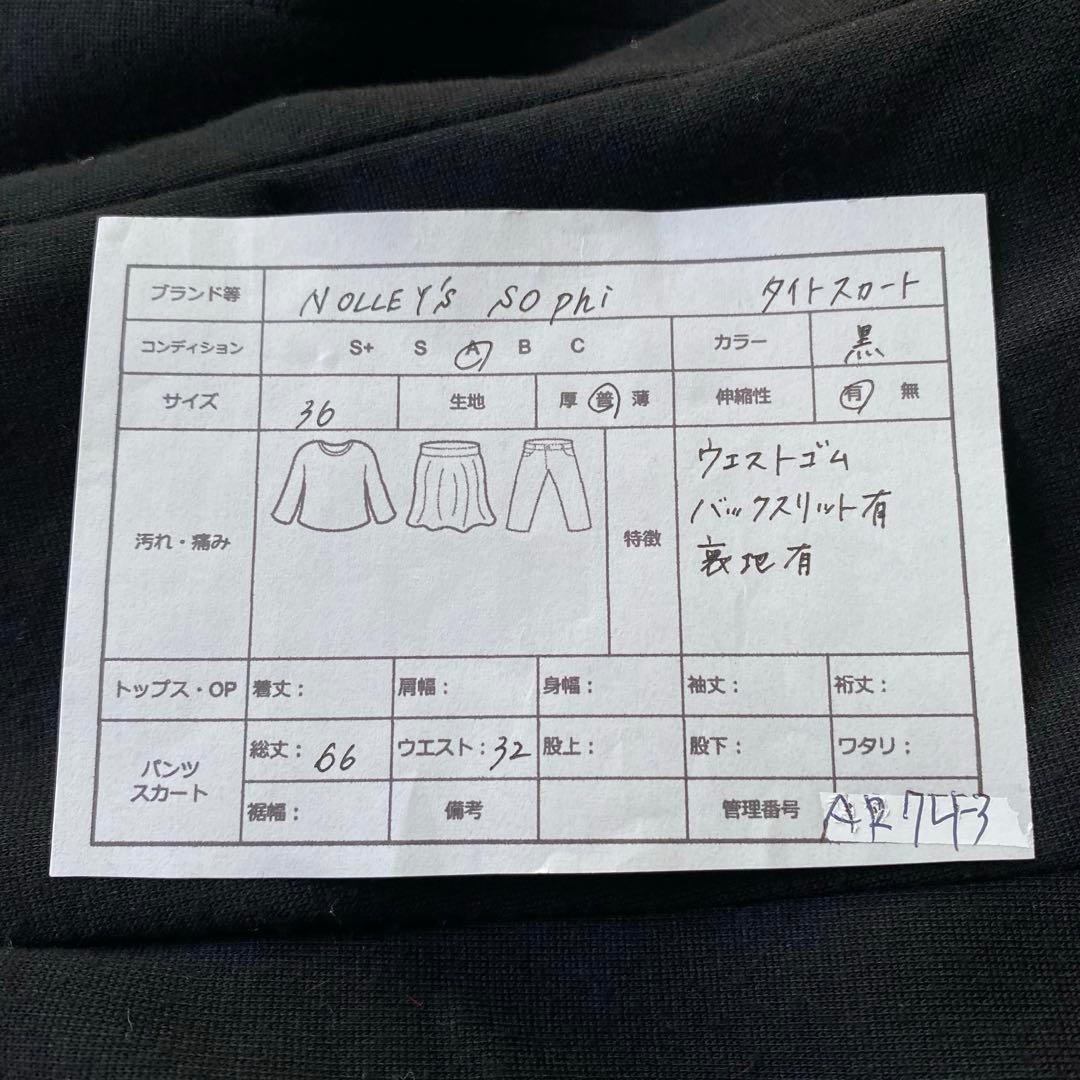 ブランド等 NOLLEY'S SOphi タイトスカート
コンディション S+ S A B C カラー 黒
サイズ 36 生地 厚 普 薄 伸縮性 有 無
汚れ・痛み 特徴
ウエストゴム
バックスリット有
裏地有
トップス・OP 着丈: 肩幅: 身幅: 袖丈: 裄丈:
パンツ
スカート
総丈: 66 ウエスト: 32 股上: 股下: ワタリ:
裾幅: 備考 管理番号 AR743